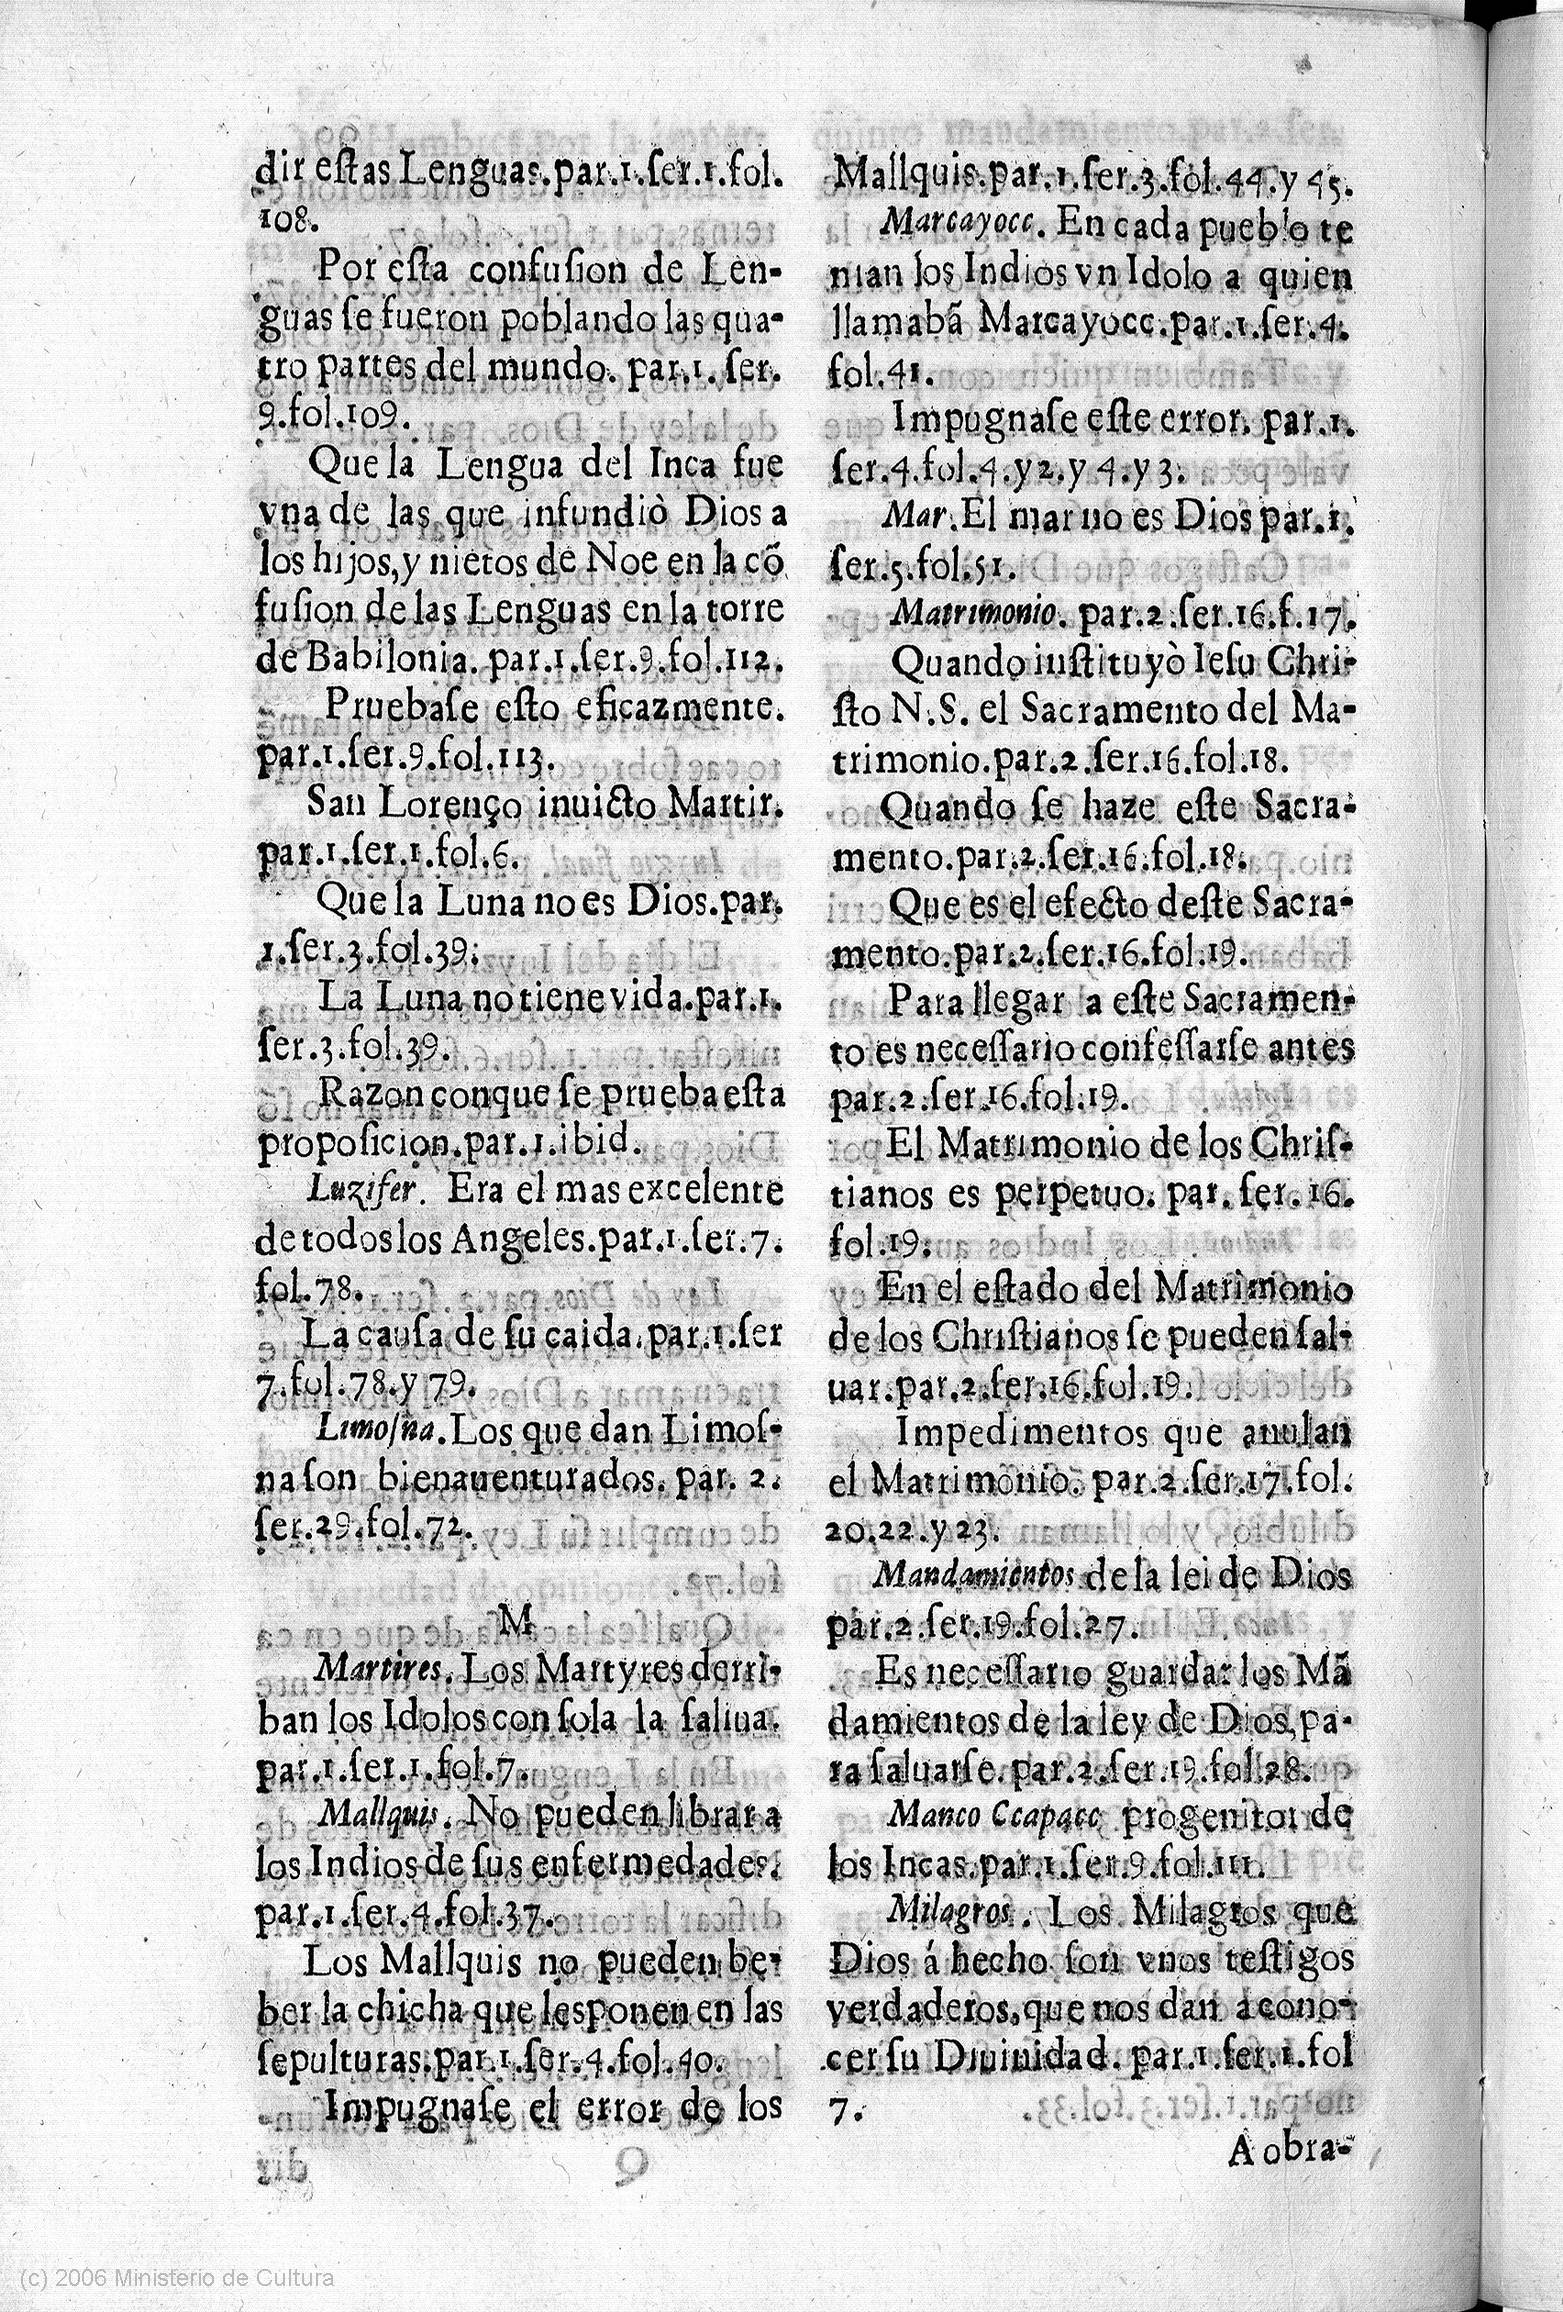 dir eſtas Lenguas.par.1.ſer.1.fol.
108.
Por eſta confuſion de Len-
guas ſe fueron poblando las qua-
tro partes del mundo. par.1. ſer.
9.fol.109.
Que la Lengua del Inca fue
vna de las que infundiò Dios a
los hijos,y nietos de Noe en la cõ
fuſion de las Lenguas en la torre
de Babilonia. par.1.ſer.9.fol.112.
Pruebaſe eſto eficazmente.
par.1.ſer.9.fol.113.
San Lorenço inuicto Martir.
par.1.ſer.1.fol.6.
Que la Luna no es Dios.par.
1.ſer.3.fol.39.
La Luna no tiene vida.par.1.
ſer.3.fol.39.
Razon conque ſe prueba eſta
propoſicion.par.1.ibid.
Luzifer. Era el mas excelente
de todos los Angeles.par.1.ſer.7.
fol.78.
La cauſa de ſu caida.par.1.ſer
7.fol.78.y 79.
Limoſna.Los que dan Limoſ-
na ſon bienauenturados. par. 2.
ſer.29.fol.72.
M
Martires. Los Martyres derri-
ban los Idolos con ſola la ſaliua.
par.1.ſer.1.fol.7.
Mallquis. No pueden librar a
los Indios de ſus enfermedades.
par.1.ſer.4.fol.37.
Los Mallquis no pueden be-
ber la chicha que les ponen en las
ſepulturas.par.1.ſer.4.fol.40.
Impugnaſe el error de los
Mallquis.par.1.ſer.3.fol.44.y 45.
Marcayocc. En cada pueblo te
nian los Indios vn Idolo a quien
llamabã Marcayocc.par.1.ſer.4.
fol.41.
Impugnaſe eſte error. par.1.
ſer.4.fol.4.y 2.y 4.y 3.
Mar.El mar no es Dios par.1.
ſer.5.fol.51.
Matrimonio. par.2.ſer.16.f.17.
Quando inſtituyò Ieſu Chri-
ſto N.S. el Sacramento del Ma-
trimonio.par.2.ſer.16.fol.18.
Quando ſe haze eſte Sacra-
mento.par.2.ſer.16.fol.18.
Que es el efecto deſte Sacra-
mento.par.2.ſer.16.fol.19.
Para llegar a eſte Sacramen-
to es neceſſario confeſſarſe antes
par.2.ſer.16.fol.19.
El Matrimonio de los Chriſ-
tianos es perpetuo. par. ſer. 16.
fol.19.
En el eſtado del Matrimonio
de los Chriſtianos ſe pueden ſal-
uar.par.2.ſer.16.fol.19.
Impedimentos que anulan
el Matrimonio. par.2.ſer.17.fol.
20.22.y 23.
Mandamientos de la lei de Dios
par.2.ſer.19.fol.27.
Es neceſſario guardar los Mã
damientos de la ley de Dios,pa-
ra ſaluarſe.par.2.ſer.19.fol.28.
Manco Ccapacc progenitor de
los Incas.par.1.ſer.9.fol.111.
Milagros. Los Milagros que
Dios á hecho ſon vnos teſtigos
verdaderos,que nos dan a cono-
cer ſu Diuinidad. par.1.ſer.1.fol
7.
A obra-
(c) 2006 Ministerio de Cultura